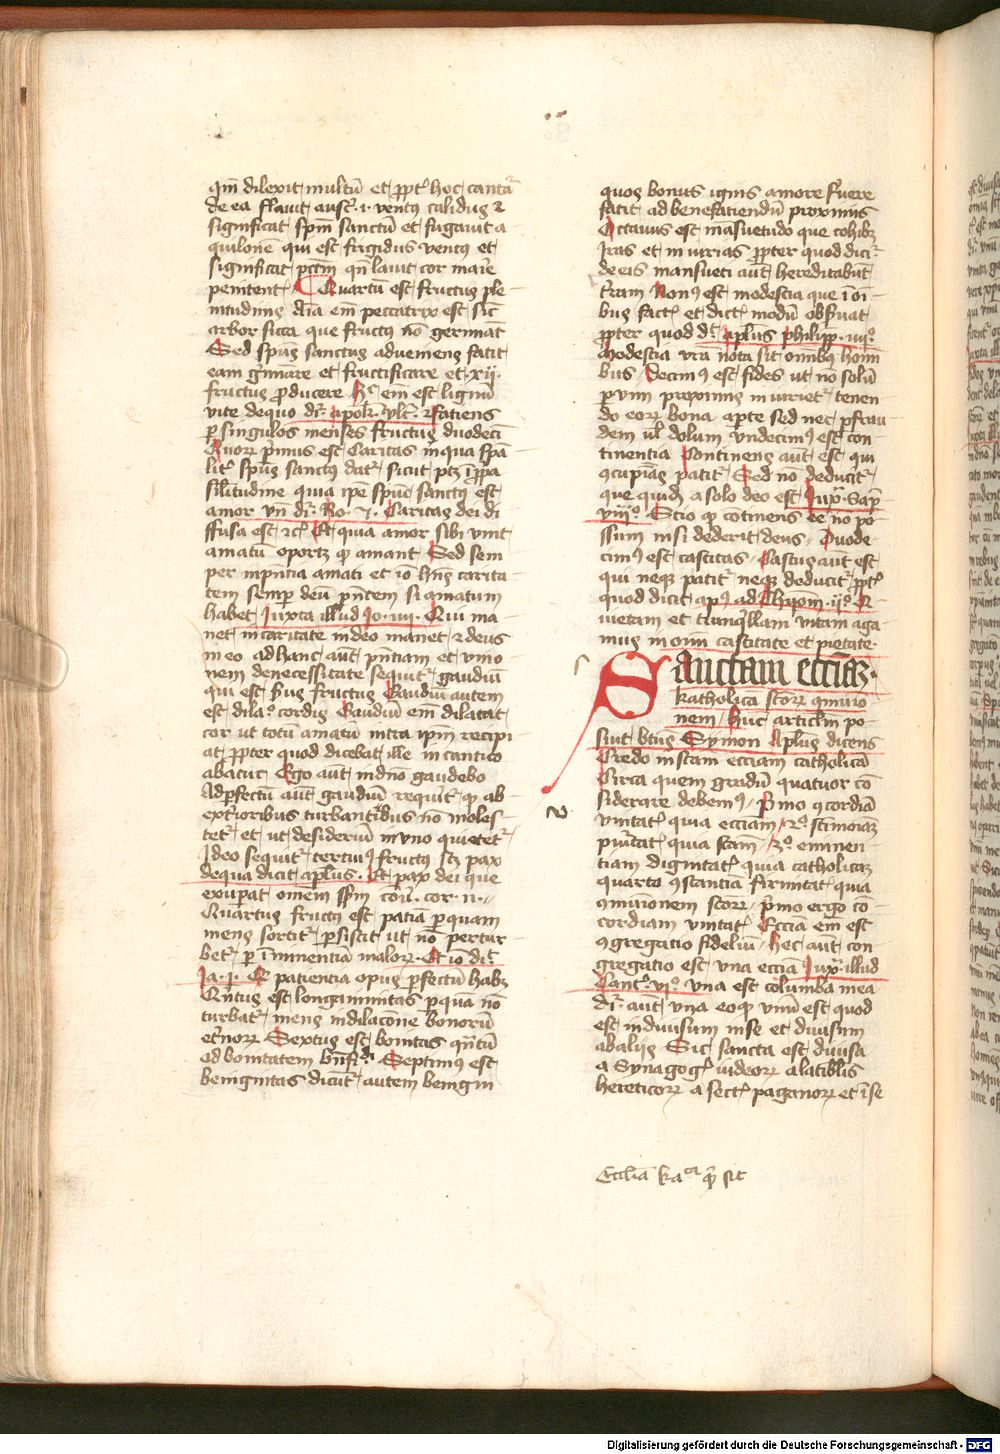 qm̄ dilexit multū et ꝓpt᷑ hoc cantat᷑
de ea fflauit aust᷑ .i. ventus calidus ⁊
significat spm̄ sanctū et fugauit a
quilonē qui est frigidus ventus et
significat pctm̄ qn̄ lauit cor marie
penitent᷑ Quartū est fructus ple
nitudinis Aīa em̄ peccatrix est sic᷑
arbor sicca que fructū nō germinat
Sed spūs sanctus adueniens facit
eam gminare et fructificare et xij
fructus ꝓducere hᷓ em̄ est lignū
vite de quo dr̄ apok᷑ vlt᷑ ⁊ faciens
ꝑ singulos menses fructus duodecī
Quoꝝ pͥmus est Caritas in qua spā
lit᷑ spūs sanctus dat᷑ sicut ptꝫ ī ꝓpa
silitudine quia ipe spūs sanctus est
amor vn̄ dr̄ Ro. v. Caritas dei di
ffusa est ⁊c᷑ Et quia amor sibi vnit
amatū oportꝫ ꝙ amant Sed sem
per in pn̄tia amati et iō hn̄s carita
tem semper deū pn̄tem si amatum
habet Juxta illud Jo. iiij. Qui ma
net in caritate in deo manet ⁊ deus
in eo ad hanc aūt pn̄tiam et vnio
nem de necessitate sequit᷑ gaudiū
qui est scd̄us fructus Gaudiū autem
est dila᷑o cordis Gaudiū em̄ dilatat
cor ut totū amatū intra ipm̄ recipi
at ꝓpter quod dicebat ille in cantico
abacuc Ego aūt in dn̄o gaudebo
Ad ꝑfectū aūt gaudiū requirit᷑ ꝙ ab
exterioribus turbantibus nō moles
tet᷑ et ut desideriū in vno quietet᷑
Ideo sequit᷑ tertius fructus scꝫ pax
de qua dicit aplus Et pax dei que
exuperat omnem sensum
Quartus fructus est patiā per quam
mens fortit᷑ ꝑsistit ut nō pertur
bet᷑ ꝑ iminentia maloꝝ Et iō dic᷑
Ja. j. Et patientia opus ꝑfectum habꝫ
Qintus est longanimitas ꝑ qua nō
turbat᷑ mens in dilac̄one bonorū
et᷑noꝝ Sextus est bonitas quātū
ad bonitatem Septimus est
benignitas dicūt᷑ autem benigni
quos bonus ignis amore fuere
facit ad benefatiendū proximis
Octauus est masuetudo que cohibꝫ
Iras et in iurias ꝓpter quod dicit᷑
de eis mansueti aūt hereditabūt
terram Nonus est modestia que ī oī
bus fact᷑ et dict᷑ modū obseruat
ꝓpter quod dt᷑ aplus philipp. iiijº.
Modestia vrā nota sit omnibꝰ homi
bus Decimꝰ est fides ut nō solū
ꝓximi in iuriet᷑ tenen
do eoꝝ bona aperte sed nec ꝑ frau
dem ul̄ dolum vndecimꝰ est con
tinentia Continens aūt est qui
ꝯcupiās patit᷑ Sed nō deducit᷑
que quidē a solo deo est Juxᵃ Sap̄
viijº. Scio ꝙ cōtinens eē nō po
ssum nisi dederit deus Duode
cimꝰ est castitas Castus aūt est
qui neqꝫ patit᷑ neqꝫ deducit᷑ ꝓpt᷑
quod dicit apꝰ ad Thijom. ijº. Q
uietam et tranqͥllam vitam aga
mus in om̄i castitate et pietate
Sanctam ecc̄iaꝫ
katholicā sc̄oꝝ ꝯmnio
nem Huc articlm̄ po
suit bt̄us Symon Aplus dicens
Credo in sc̄am ecc̄iam catholicā
Circa quem gradū quatuor cō
siderare debemꝰ Pͥmo ꝯcordiā
vnitat᷑ quia ecc̄iam / 2º. sc̄imoiaꝫ
puritat᷑ quia sc̄am / 3º. eminen
tiam dignitat᷑ quia catholicaꝫ
quarto ꝯstantiā firmitat᷑ quia
ꝯmunionem sc̄oꝝ pͥmo ergo cō
cordiam vnitat᷑ Ecc̄ia em̄ est
ꝯgregatio fideliū hec aūt con
gregatio est vna ecc̄ia Juxᵃ illud
Cantº. vjº. vna est columba mea
dr̄ aūt vna eo ꝙ vnū est quod
est in diuisum in se et diuisum
ab alijs Sic sancta est diuisa
a Synagog᷑ iudeoꝝ a latiblis
hereticoꝝ a sect᷑ paganoꝝ et ī se
Eccliā kaᶜᵃ qͣ sit
Digitalisierung gefördert durch die Deutsche Forschungsgemeinschaft - DFG